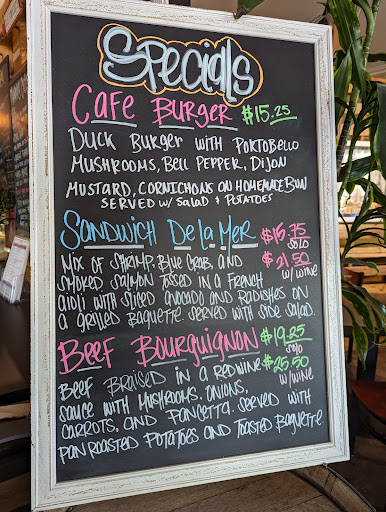 Specials
Cafe Burger $15.25
Duck Burger with Portobello
Mushrooms, Bell Pepper, Dijon
Mustard, Cornichons on Homemade Bun
Served w/ Salad & Potatoes
Sandwich De la Mer $15.75
solo
$21.50
w/ wine
Mix of Shrimp, Blue Crab, and
smoked salmon tossed in a French
aioli with sliced avocado and radishes on
a grilled baguette. Served with side salad.
Beef Bourguignon $19.25
solo
$25.50
w/ wine
Beef Braised in a red wine
sauce with mushrooms, onions,
carrots, and pancetta. Served with
pan roasted potatoes and toasted baguette